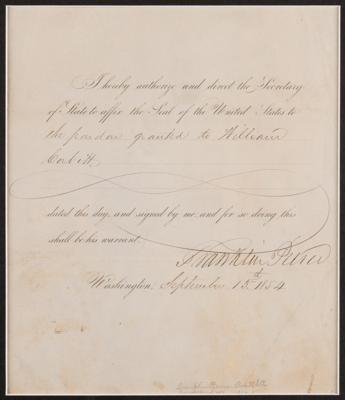 I hereby authorize and direct the Secretary
of State to affix the Seal of the United States to
the pardon granted to William
Corbitt
dated this day, and signed by me, and for so doing this
shall be his warrant.
Franklin Pierce
Washington, September 15th 1854